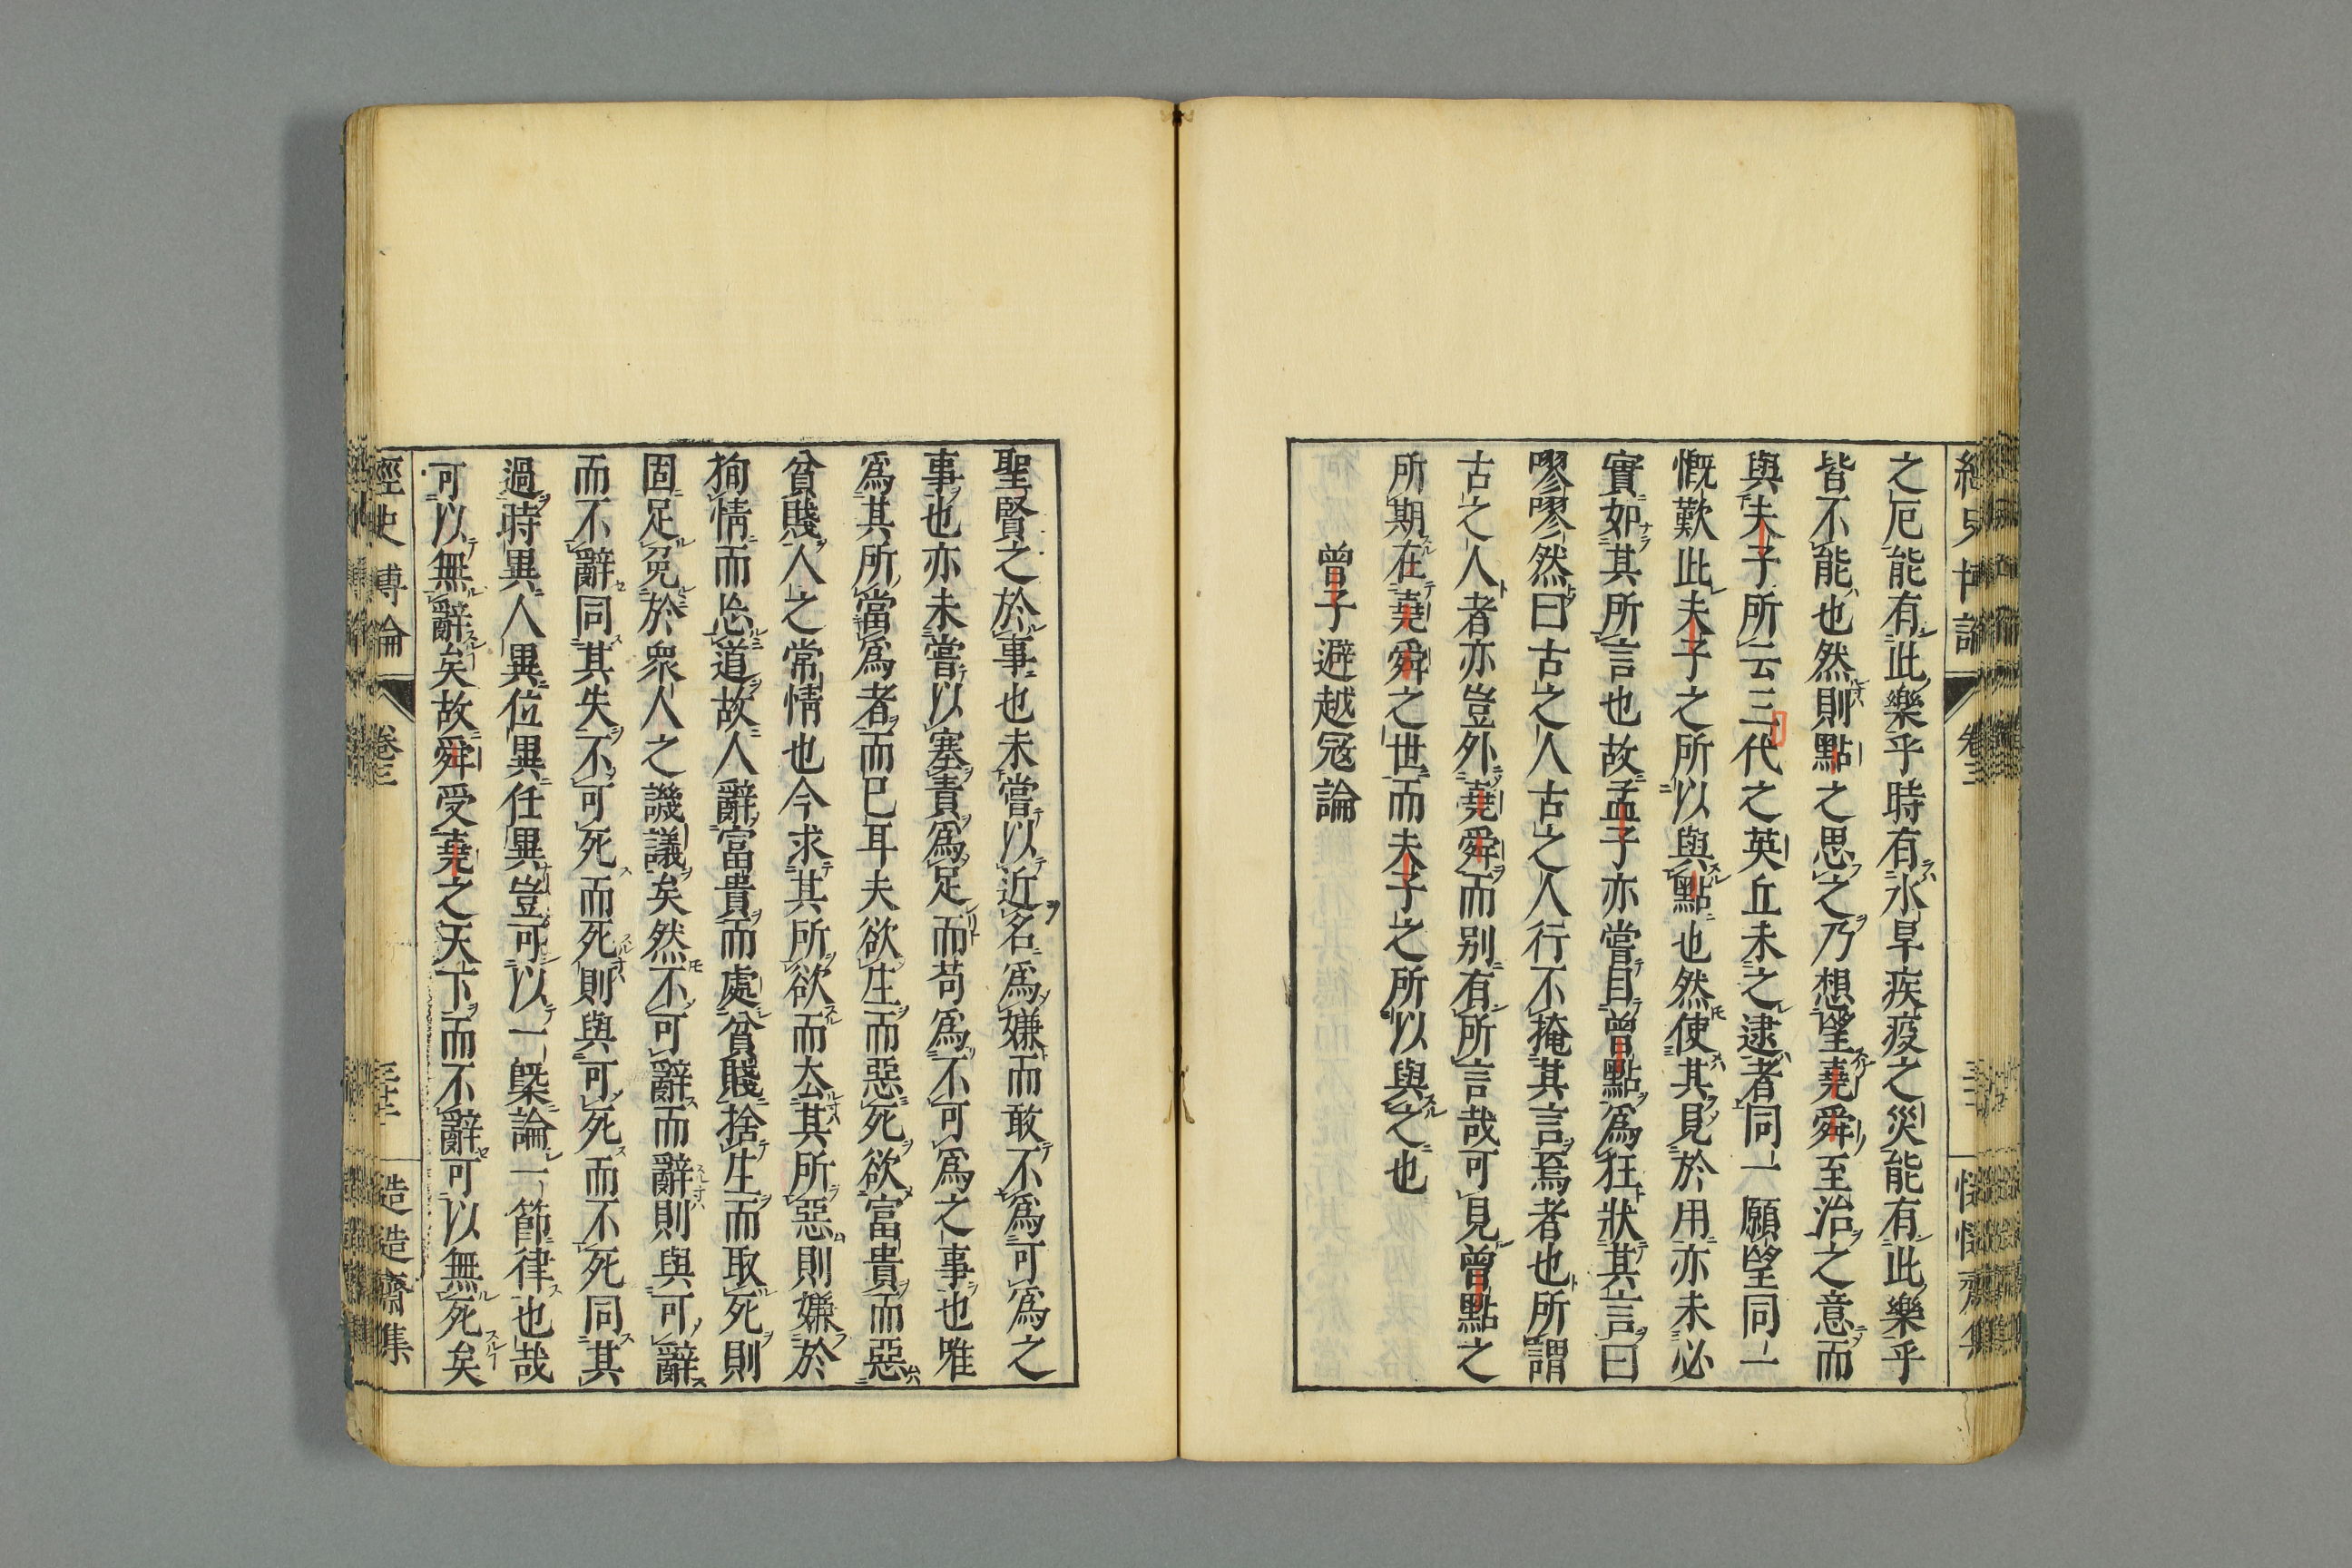 之厄能有此樂乎時有水旱疾疫之災能有此樂乎
皆不能也然則點之思之乃想望堯舜至治之意而
與夫子所云三代之英丘未之逮者同一願望同一
慨歎此夫子之所以與點也然使其見於用亦未必
實如其所言也故孟子亦嘗目曾點爲狂狀其言曰
嘐嘐然曰古之人古之人行不掩其言焉者也所謂
古之人者亦豈外堯舜而別有所言哉可見曾點之
所期在堯舜之世而夫子之所以與之也
曾子避越寇論
聖賢之於事也未嘗以近名爲嫌而敢不爲可爲之
事也亦未嘗以塞責爲足而苟爲不可爲之事也唯
爲其所當爲者而已耳夫欲生而惡死欲富貴而惡
貧賤人之常情也今求其所欲而去其所惡則嫌於
狥情而忘道故人辭富貴而處貧賤捨生而取死則
固足免於衆人之譏議矣然不可辭而辭則與可辭
而不辭同其失不可死而死則與可死而不死同其
過時異人異位異任異豈可以一槩論一節律也哉
可以無辭矣故舜受堯之天下而不辭可以無死矣
經史博論 卷三